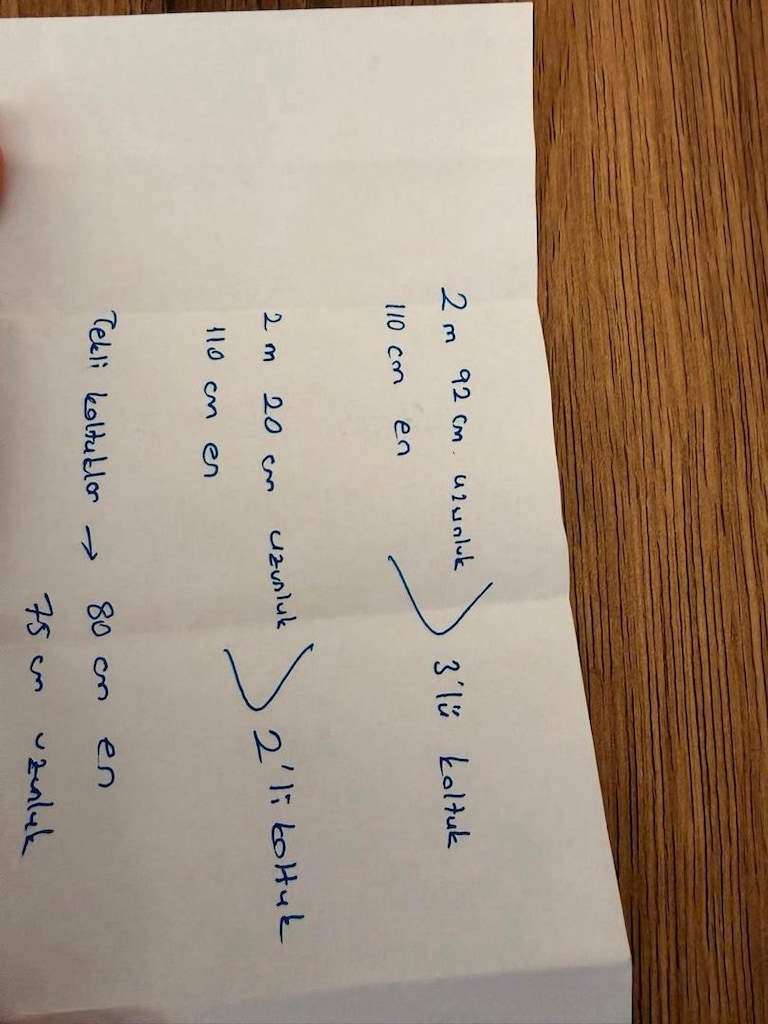 2 m 92 cm. uzunluk
110 cm en
3'lü koltuk
2 m 20 cm uzunluk
110 cm en
2'li koltuk
Tekli koltuklar → 80 cm en
75 cm uzunluk